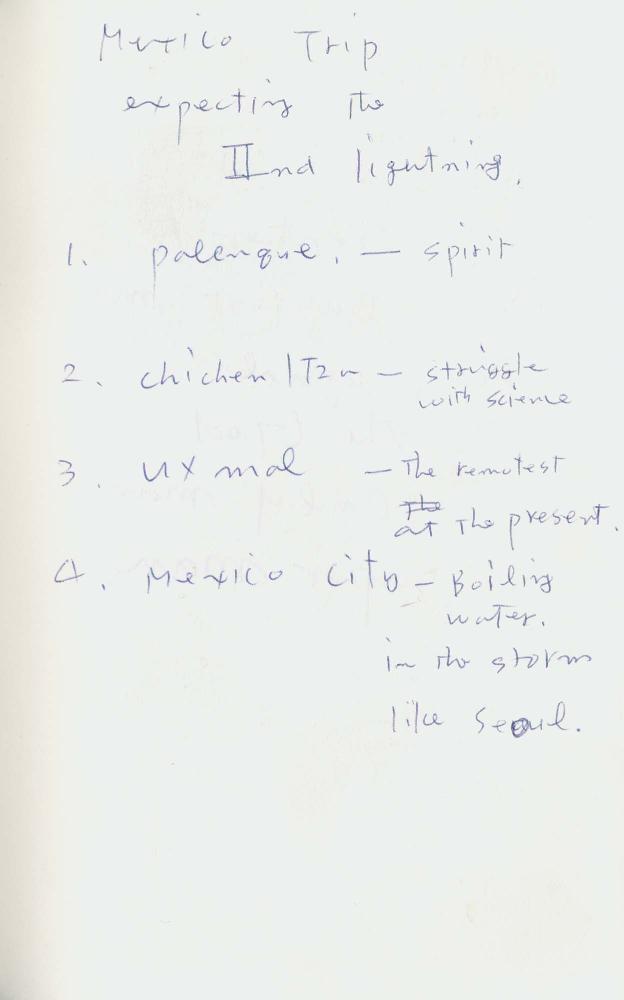 Mexico Trip
expecting the
IInd lightning.
1. palenque. — spirit
2. chichen ITza — struggle
with science
3. UX mal — The remotest
The
at The present.
4. Mexico City — Boiling
water.
in the storm
like Seoul.